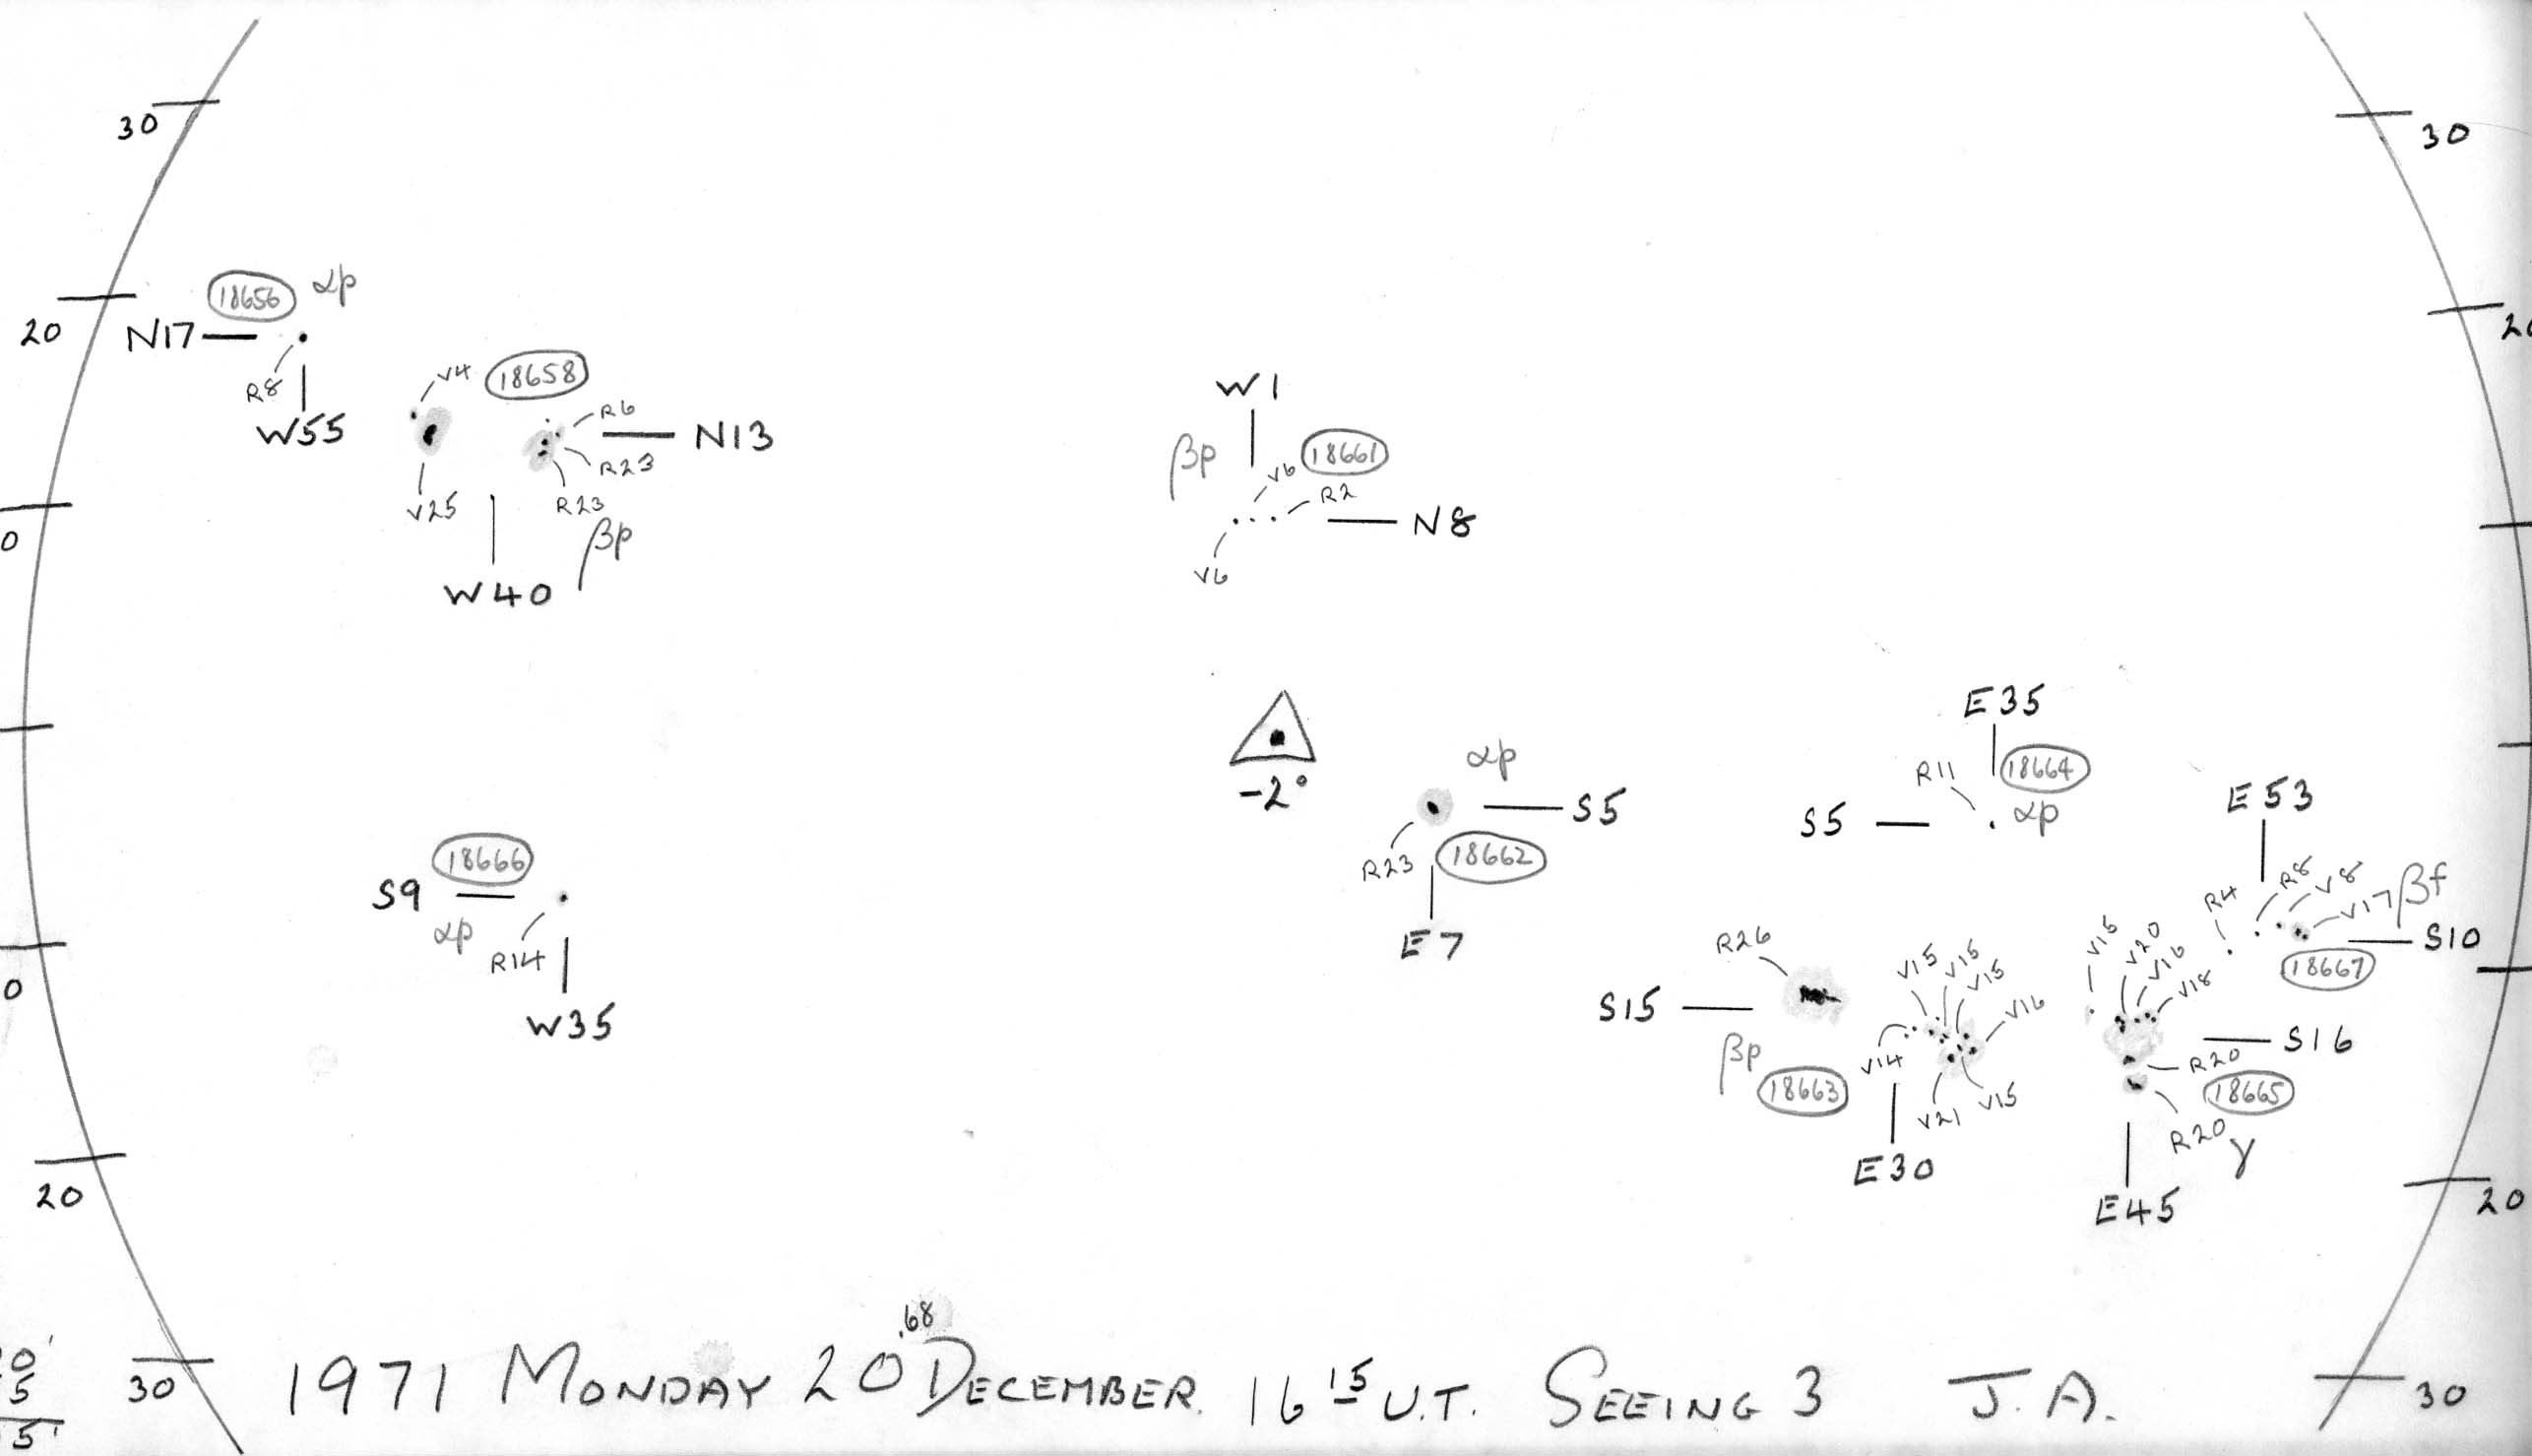 30
30
18656 αp
20 N17
R8
W55
20
V4 18658
R6
N13
R23
V25 R23
βp
W40
W1
βp V6 18661
R2
N8
V6
0
-2°
αp
S5
R23 18662
E7
E35
R11 18664
S5 αp
E53
R4 R8 V8 V17 βf
S10
18667
18666
S9
αp
R14
W35
0
R26
S15
βp
18663
V15 V15 V15
V16
V14
V21 V15
E30
V16 V20 V16 V18
S16
R20
18665
R20 γ
E45
20
20
0'
5
5'
30
.68
1971 MONDAY 20 DECEMBER. 16 15 U.T. SEEING 3 J.A.
30